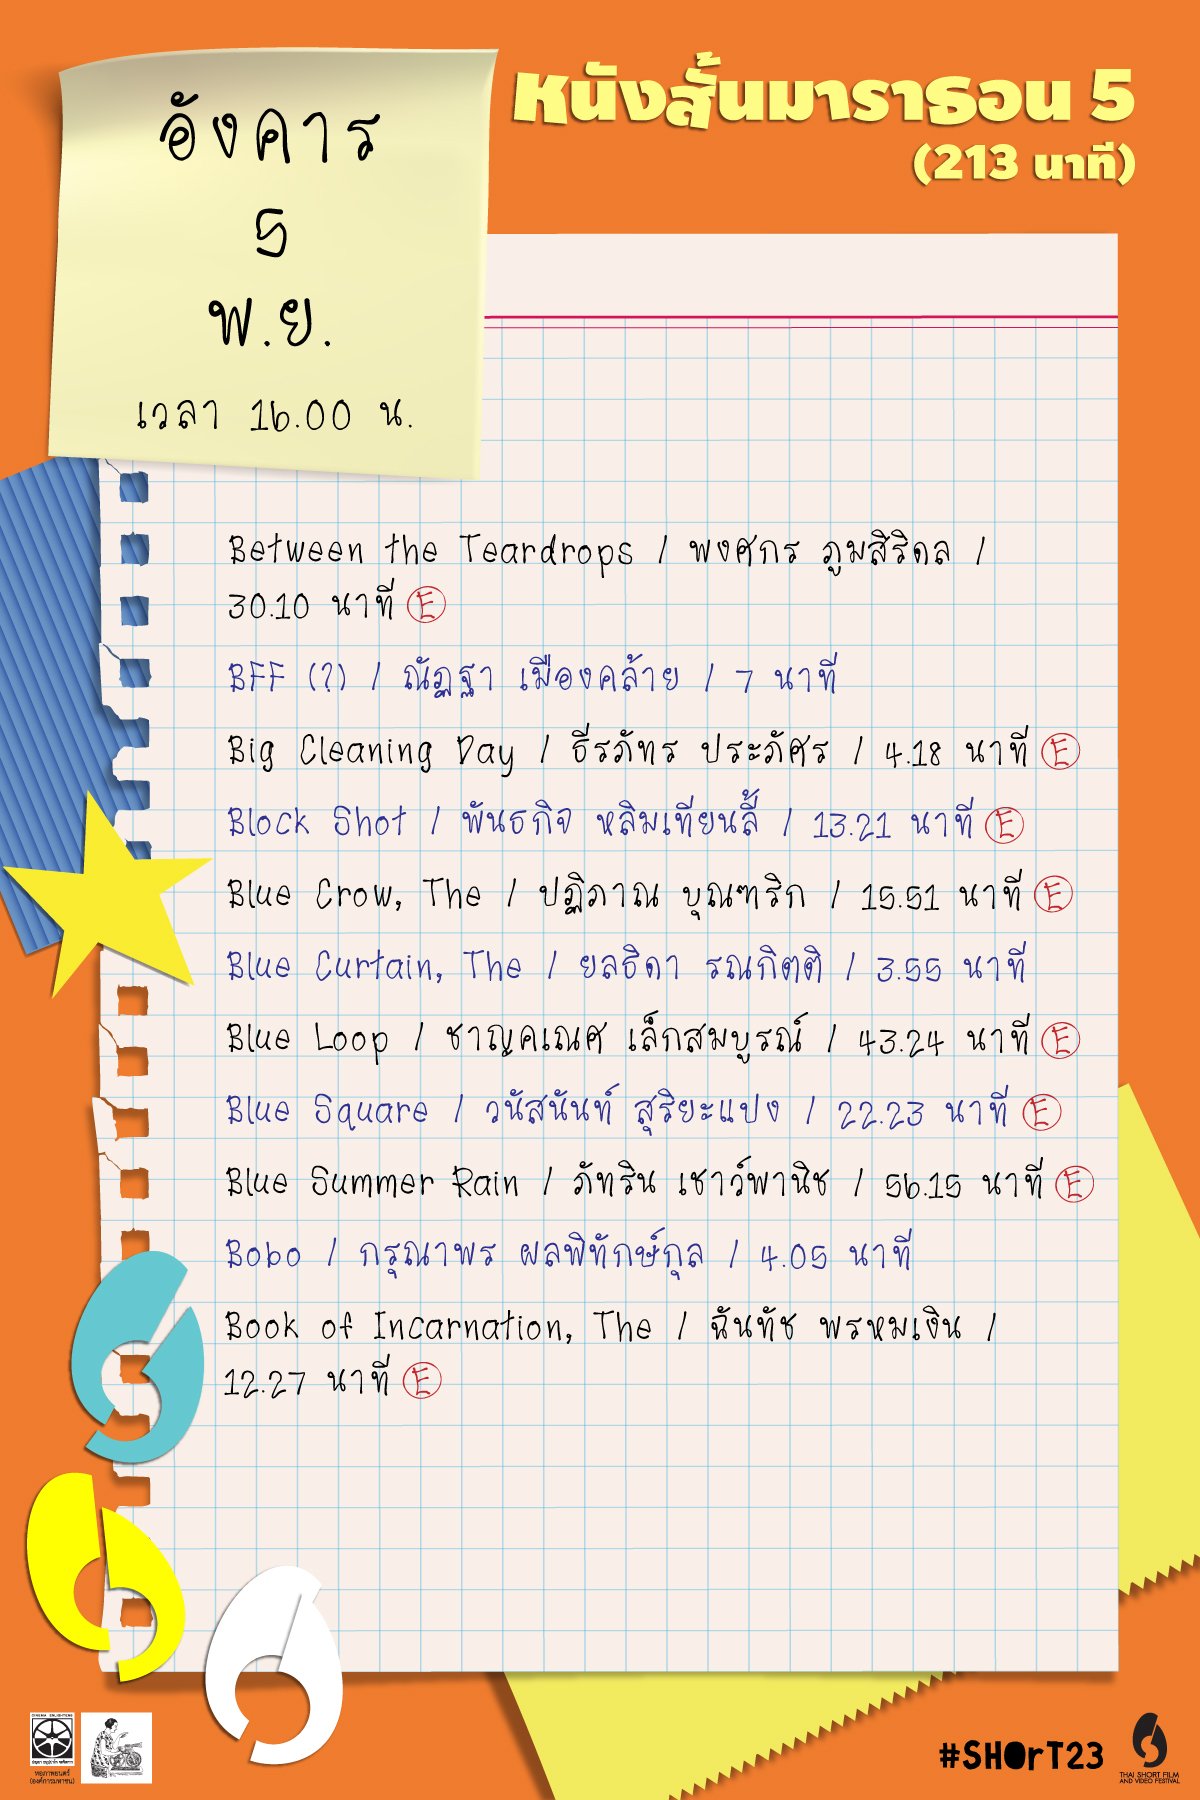 อังคาร
5
พ.ย.
เวลา 16.00 น.
หนังสั้นมาราธอน 5
(213 นาที)
Between the Teardrops / พงศกร ภูมสิริดล /
30.10 นาที E
BFF (?) / ณัฏฐา เมืองคล้าย / 7 นาที
Big Cleaning Day / ธีรภัทร ประภัศร / 4.18 นาที E
Block Shot / พันธกิจ หลิมเทียนลี้ / 13.21 นาที E
Blue Crow, The / ปฏิภาณ บุณฑริก / 15.51 นาที E
Blue Curtain, The / ยลธิดา รณกิตติ / 3.55 นาที
Blue Loop / ชาญคเณศ เล็กสมบูรณ์ / 43.24 นาที E
Blue Square / วนัสนันท์ สุริยะแปง / 22.23 นาที E
Blue Summer Rain / ภัทริน เชาว์พานิช / 56.15 นาที E
Bobo / กรุณาพร ผลพิทักษ์กุล / 4.05 นาที
Book of Incarnation, The / ฉันทัช พรหมเงิน /
12.27 นาที E
หอภาพยนตร์
(องค์การมหาชน)
#SHOrT23
THAI SHORT FILM
AND VIDEO FESTIVAL